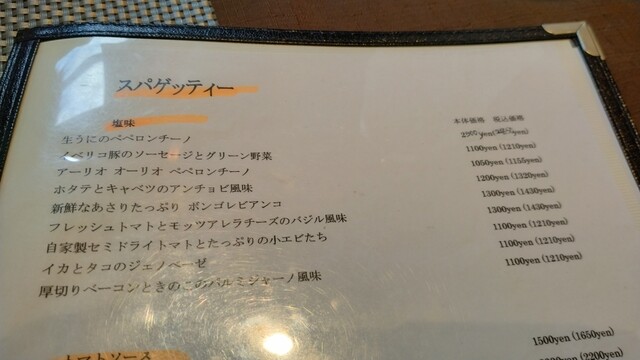 スパゲッティー
塩味 本体価格 税込価格
生うにのペペロンチーノ
イベリコ豚のソーセージとグリーン野菜 1100yen (1210yen)
アーリオ オーリオ ペペロンチーノ 1050yen (1155yen)
ホタテとキャベツのアンチョビ風味 1200yen (1320yen)
新鮮なあさりたっぷり ボンゴレビアンコ 1300yen (1430yen)
フレッシュトマトとモッツアレラチーズのバジル風味 1300yen (1430yen)
自家製セミドライトマトとたっぷりの小エビたち 1100yen (1210yen)
イカとタコのジェノベーゼ 1100yen (1210yen)
厚切りベーコンときのこのパルミジャーノ風味 1100yen (1210yen)
トマトソース
1500yen (1650yen)
(2200yen)